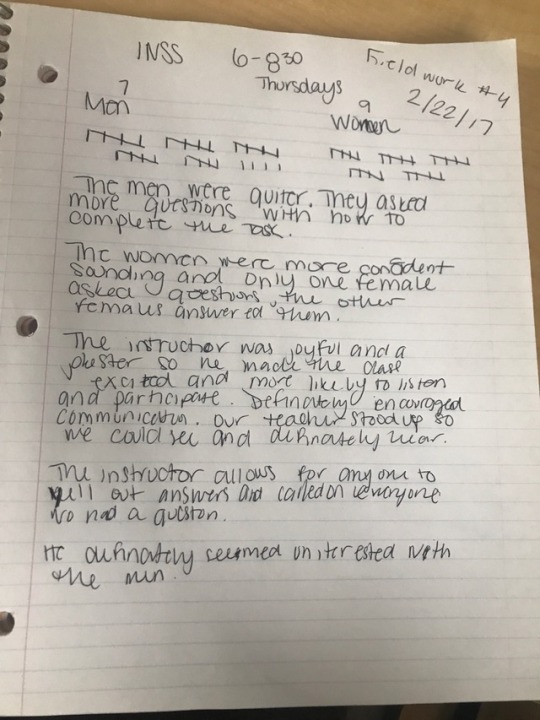 INSS 6-8³⁰ Field work #4
Thursdays 2/22/17
7 9
Men Women
The men were quiter. They asked
more questions with how to
complete the task.
The women were more confident
sounding and only one female
asked questions, the other
females answered them.
The instructor was joyful and a
jokester so he made the class
excited and more likely to listen
and participate. Definately encouraged
communication. Our teacher stood up so
we could see and definately hear.
The instructor allows for anyone to
yell out answers and called on everyone
who had a question.
He definately seemed unitersted with
the men.